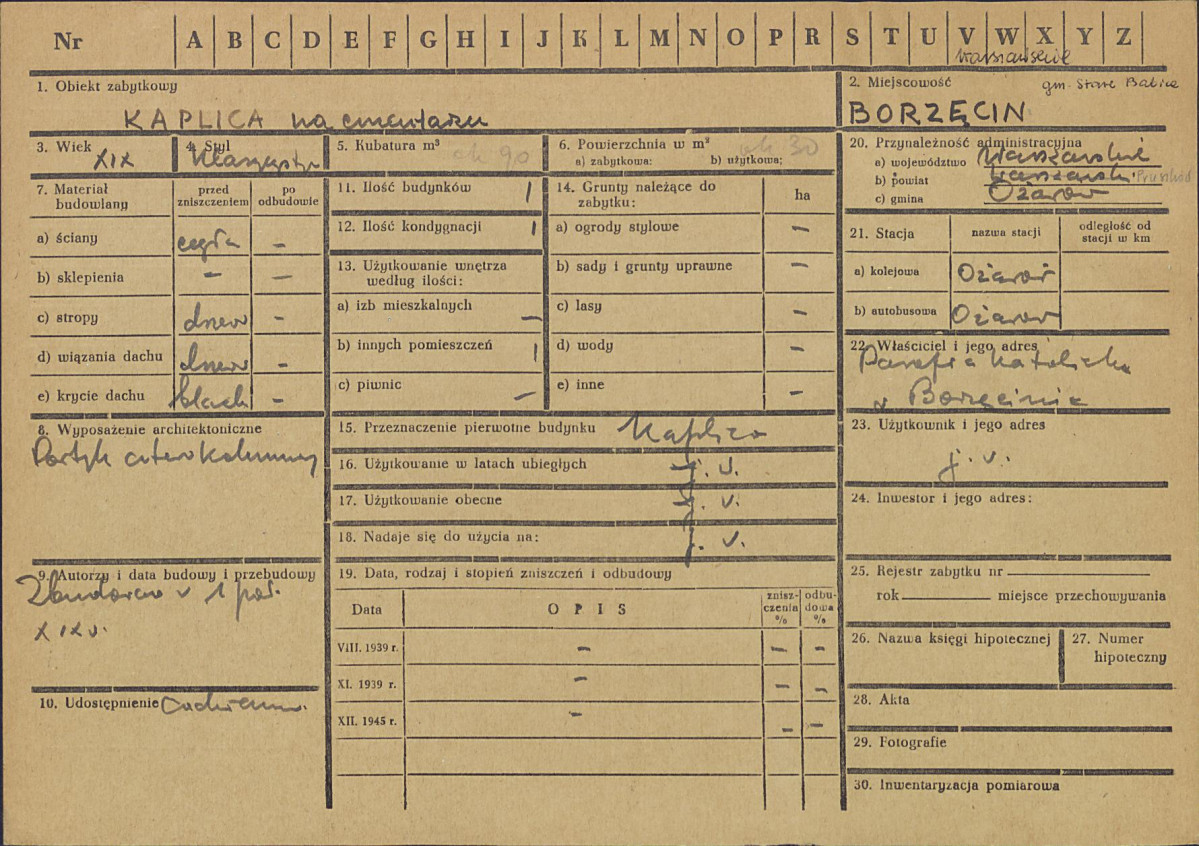 Nr A B C D E F G H I J K L M N O P R S T U V W X Y Z
warszawskie
1. Obiekt zabytkowy
KAPLICA na cmentarzu
2. Miejscowość gm. Stare Babice
BORZĘCIN
3. Wiek
XIX
4. Styl
klasycyst.
5. Kubatura m³
ok 90
6. Powierzchnia w m²
a) zabytkowa: b) użytkowa:
ok 30
20. Przynależność administracyjna
a) województwo Warszawskie
b) powiat Warszawski. Pruszków
c) gmina Ożarów
7. Materiał budowlany
przed zniszczeniem
po odbudowie
a) ściany cegła –
b) sklepienia – –
c) stropy drzew –
d) wiązania dachu drzew –
e) krycie dachu blach –
11. Ilość budynków 1
12. Ilość kondygnacji 1
13. Użytkowanie wnętrza
według ilości:
a) izb mieszkalnych –
b) innych pomieszczeń 1
c) piwnic –
14. Grunty należące do
zabytku:
ha
a) ogrody stylowe –
b) sady i grunty uprawne –
c) lasy –
d) wody –
e) inne –
21. Stacja
nazwa stacji
odległość od
stacji w km
a) kolejowa Ożarów
b) autobusowa Ożarów
22. Właściciel i jego adres
Parafia Katolicka
w Borzęcinie
8. Wyposażenie architektoniczne
Portyk czterokolumnowy
15. Przeznaczenie pierwotne budynku Kaplica
16. Użytkowanie w latach ubiegłych j. w.
17. Użytkowanie obecne j. w.
18. Nadaje się do użycia na: j. w.
23. Użytkownik i jego adres
j. w.
24. Inwestor i jego adres:
9. Autorzy i data budowy i przebudowy
Zbudowana w 1 poł.
XIX w.
10. Udostępnienie
19. Data, rodzaj i stopień zniszczeń i odbudowy
Data
OPIS
znisz-
czenia
%
odbu-
dowa
%
VIII. 1939 r. – – –
XI. 1939 r. – – –
XII. 1945 r. – – –
25. Rejestr zabytku nr
rok miejsce przechowywania
26. Nazwa księgi hipotecznej
27. Numer
hipoteczny
28. Akta
29. Fotografie
30. Inwentaryzacja pomiarowa